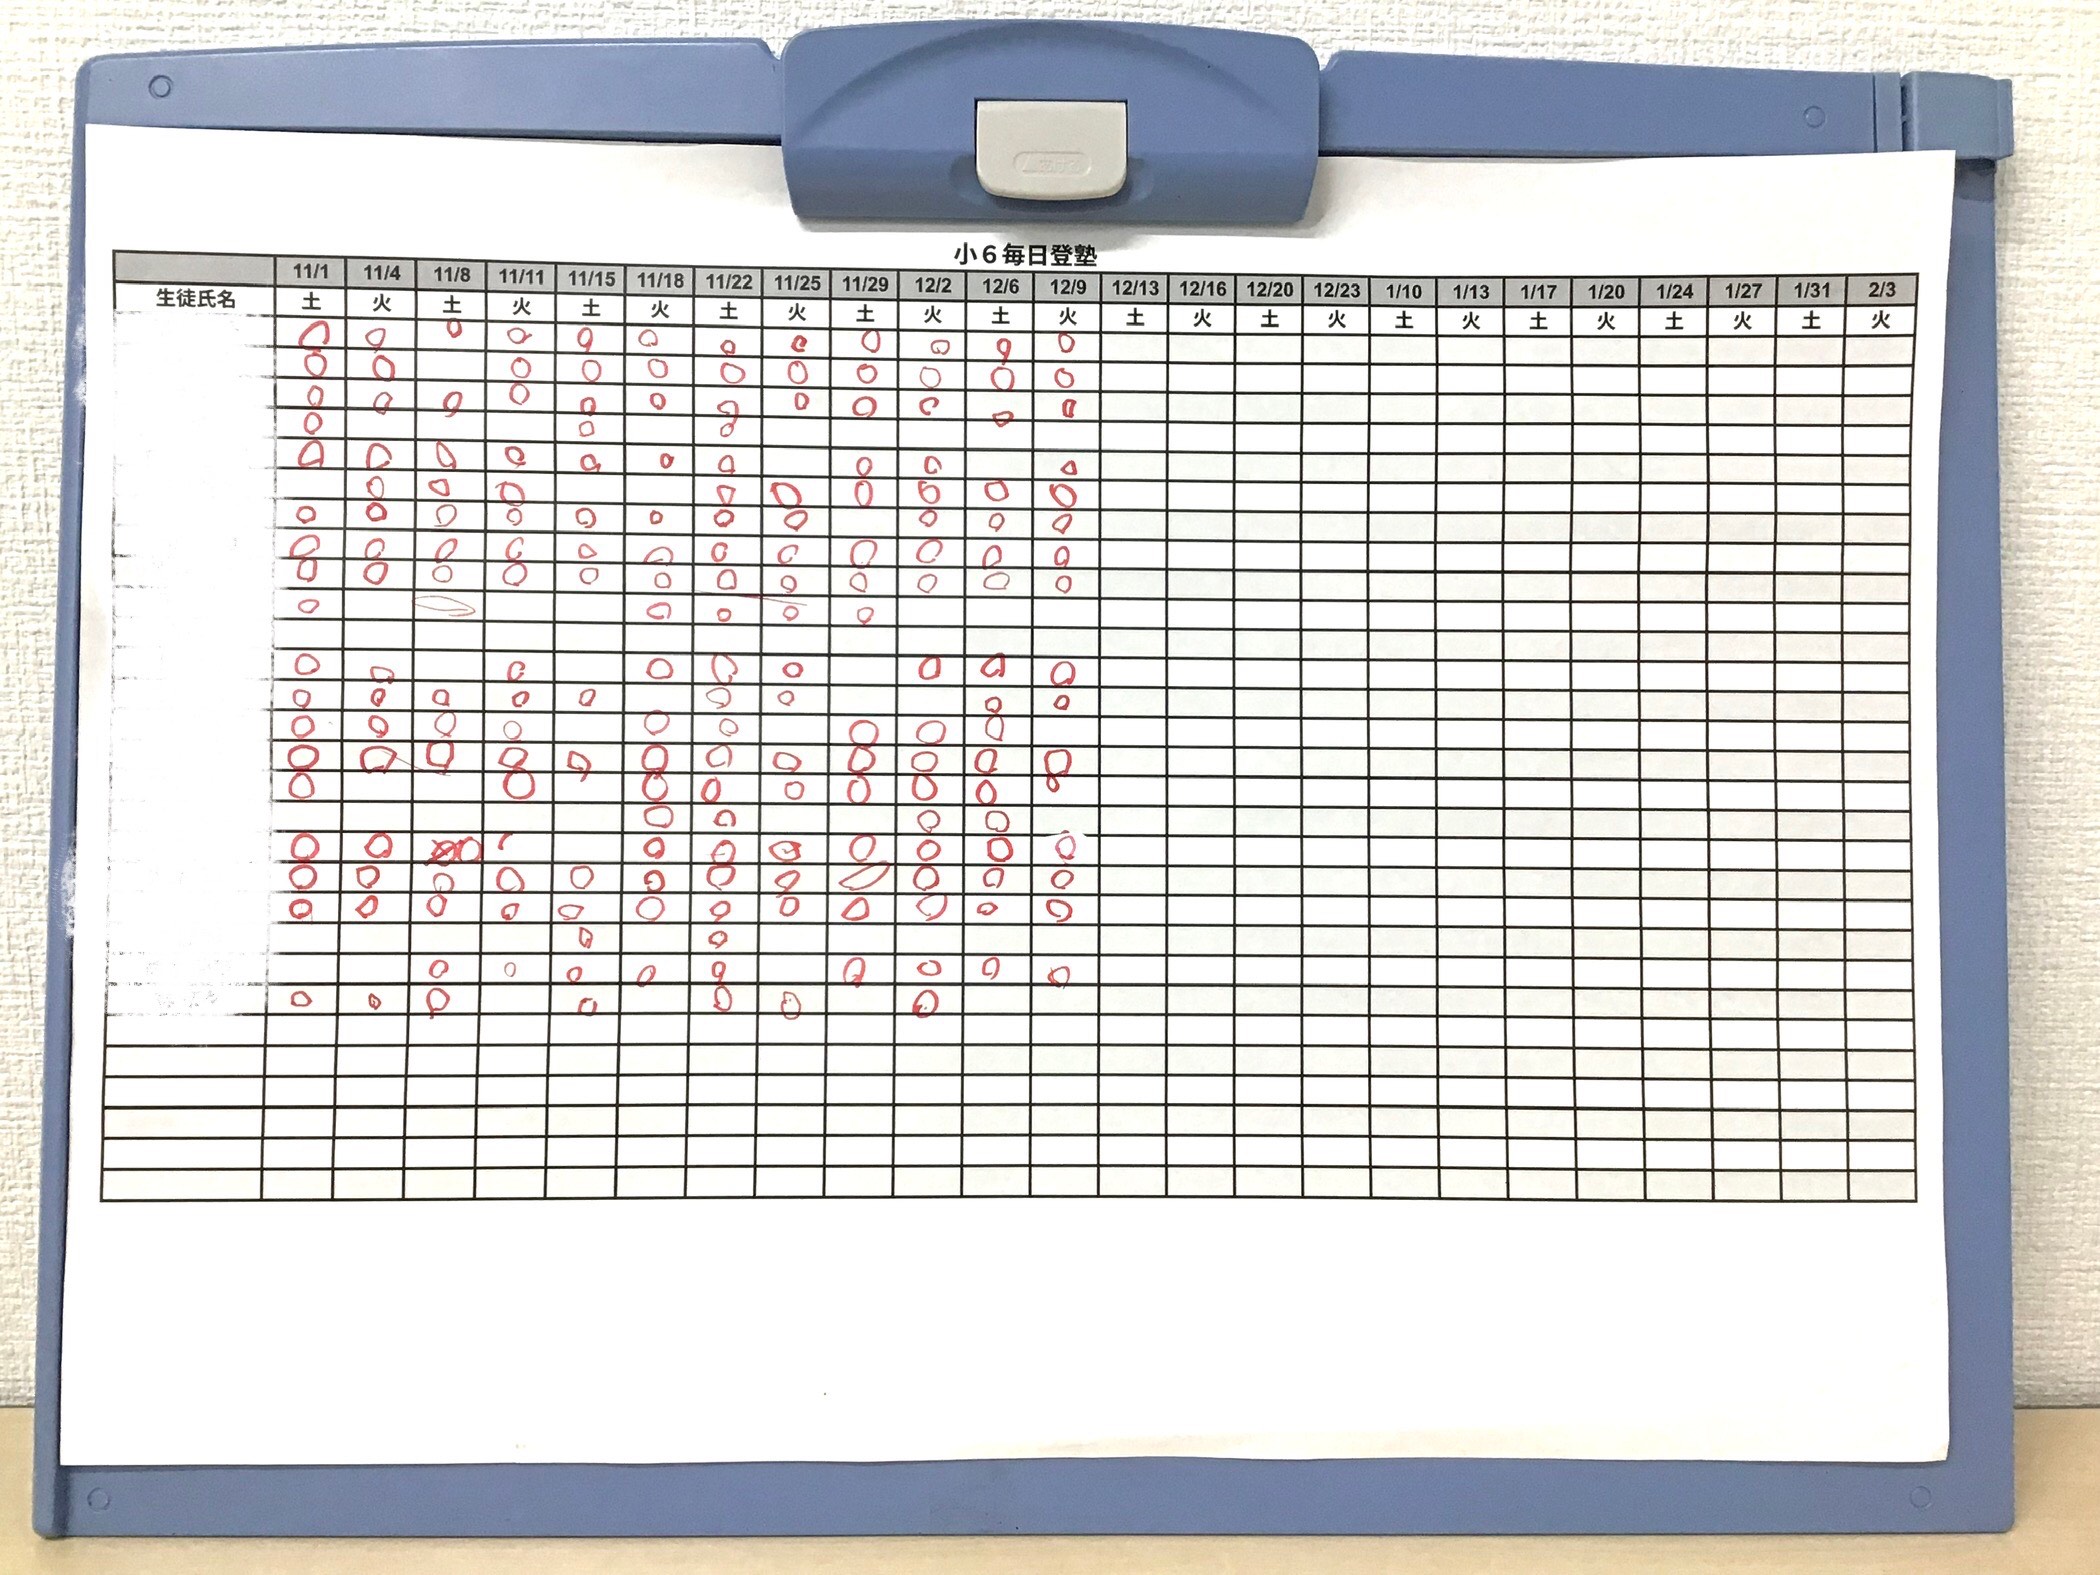 小６毎日登塾
11/1 11/4 11/8 11/11 11/15 11/18 11/22 11/25 11/29 12/2 12/6 12/9 12/13 12/16 12/20 12/23 1/10 1/13 1/17 1/20 1/24 1/27 1/31 2/3
生徒氏名 土 火 土 火 土 火 土 火 土 火 土 火 土 火 土 火 土 火 土 火 土 火 土 火